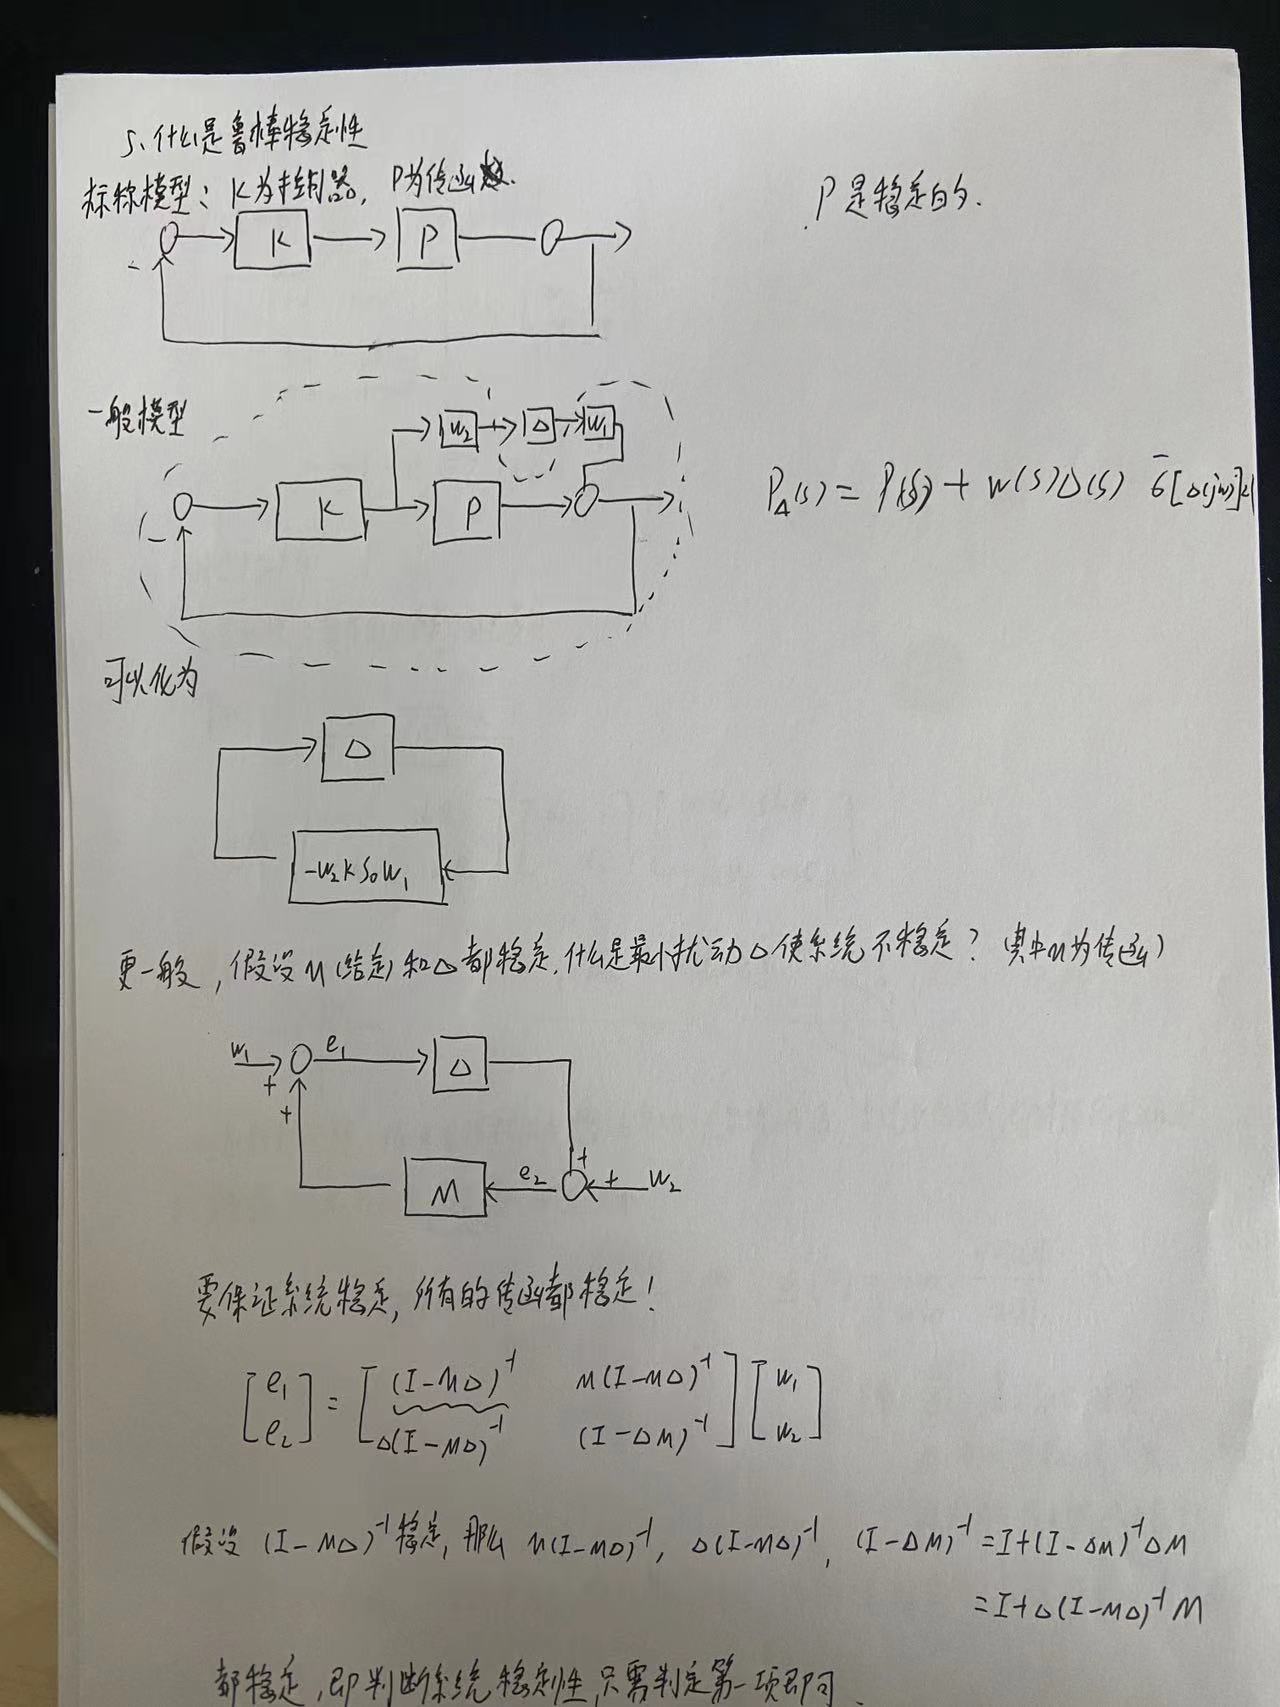 5、什么是鲁棒稳定性
标称模型：K为控制器，P为传函数.
P是稳定的.
K P
-
一般模型
W₂ Δ W₁
K P
-
P_Δ(s) = P(s) + W(s)Δ(s) σ̄[Δ(jω)]<1
可以化为
Δ
-W₂KS₀W₁
更一般，假设M(给定)和Δ都稳定，什么是最小扰动Δ使系统不稳定？(其中M为传函)
W₁ e₁ Δ
+ +
M e₂ + + W₂
要保证系统稳定，所有的传函都稳定！
[e₁ e₂] = [(I-MΔ)⁻¹ M(I-MΔ)⁻¹ Δ(I-MΔ)⁻¹ (I-ΔM)⁻¹] [W₁ W₂]
假设 (I-MΔ)⁻¹稳定，那么 M(I-MΔ)⁻¹, Δ(I-MΔ)⁻¹, (I-ΔM)⁻¹=I+(I-ΔM)⁻¹ΔM
=I+Δ(I-MΔ)⁻¹M
都稳定，即判断系统稳定性，只需判定第一项即可.